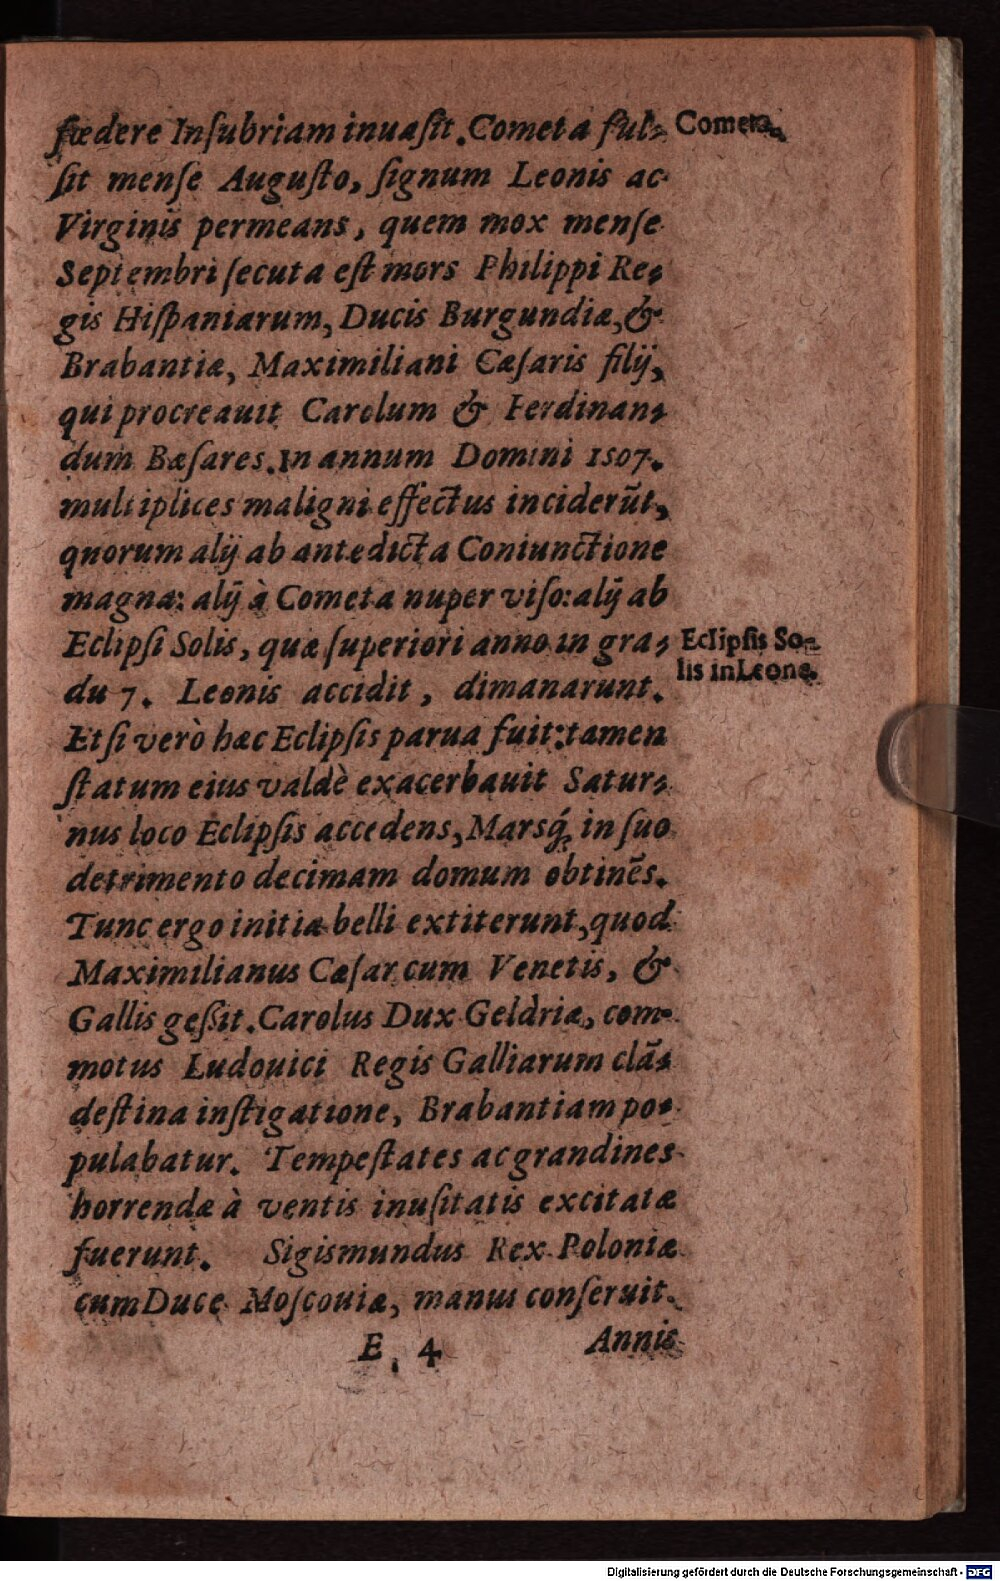 fœdere Inſubriam inuaſit. Cometa ful-
ſit menſe Auguſto, ſignum Leonis ac
Virginis permeans, quem mox menſe
Septembri ſecuta eſt mors Philippi Re-
gis Hiſpaniarum, Ducis Burgundiæ, &
Brabantiæ, Maximiliani Cæſaris filij,
qui procreauit Carolum & Ferdinan-
dum Bæſares. In annum Domini 1507.
multiplices maligni effectus inciderūt,
quorum alij ab antedicta Coniunctione
magna: alij à Cometa nuper viſo: alij ab
Eclipſi Solis, quæ ſuperiori anno in gra-
du 7. Leonis accidit, dimanarunt.
Etſi verò hæc Eclipſis parua fuit: tamen
ſtatum eius valdè exacerbauit Satur-
nus loco Eclipſis accedens, Marsq́; in ſuo
detrimento decimam domum obtinēs.
Tunc ergo initia belli extiterunt, quod
Maximilianus Cæſar cum Venetis, &
Gallis geſſit. Carolus Dux Geldriæ, com-
motus Ludouici Regis Galliarum clā-
deſtina inſtigatione, Brabantiam po-
pulabatur. Tempeſtates ac grandines
horrendæ à ventis inuſitatis excitatæ
fuerunt. Sigismundus Rex Poloniæ
cum Duce Moſcouiæ, manus conſeruit.
E 4 Annis
Cometa.
Eclipſis So-
lis in Leone.
Digitalisierung gefördert durch die Deutsche Forschungsgemeinschaft - DFG